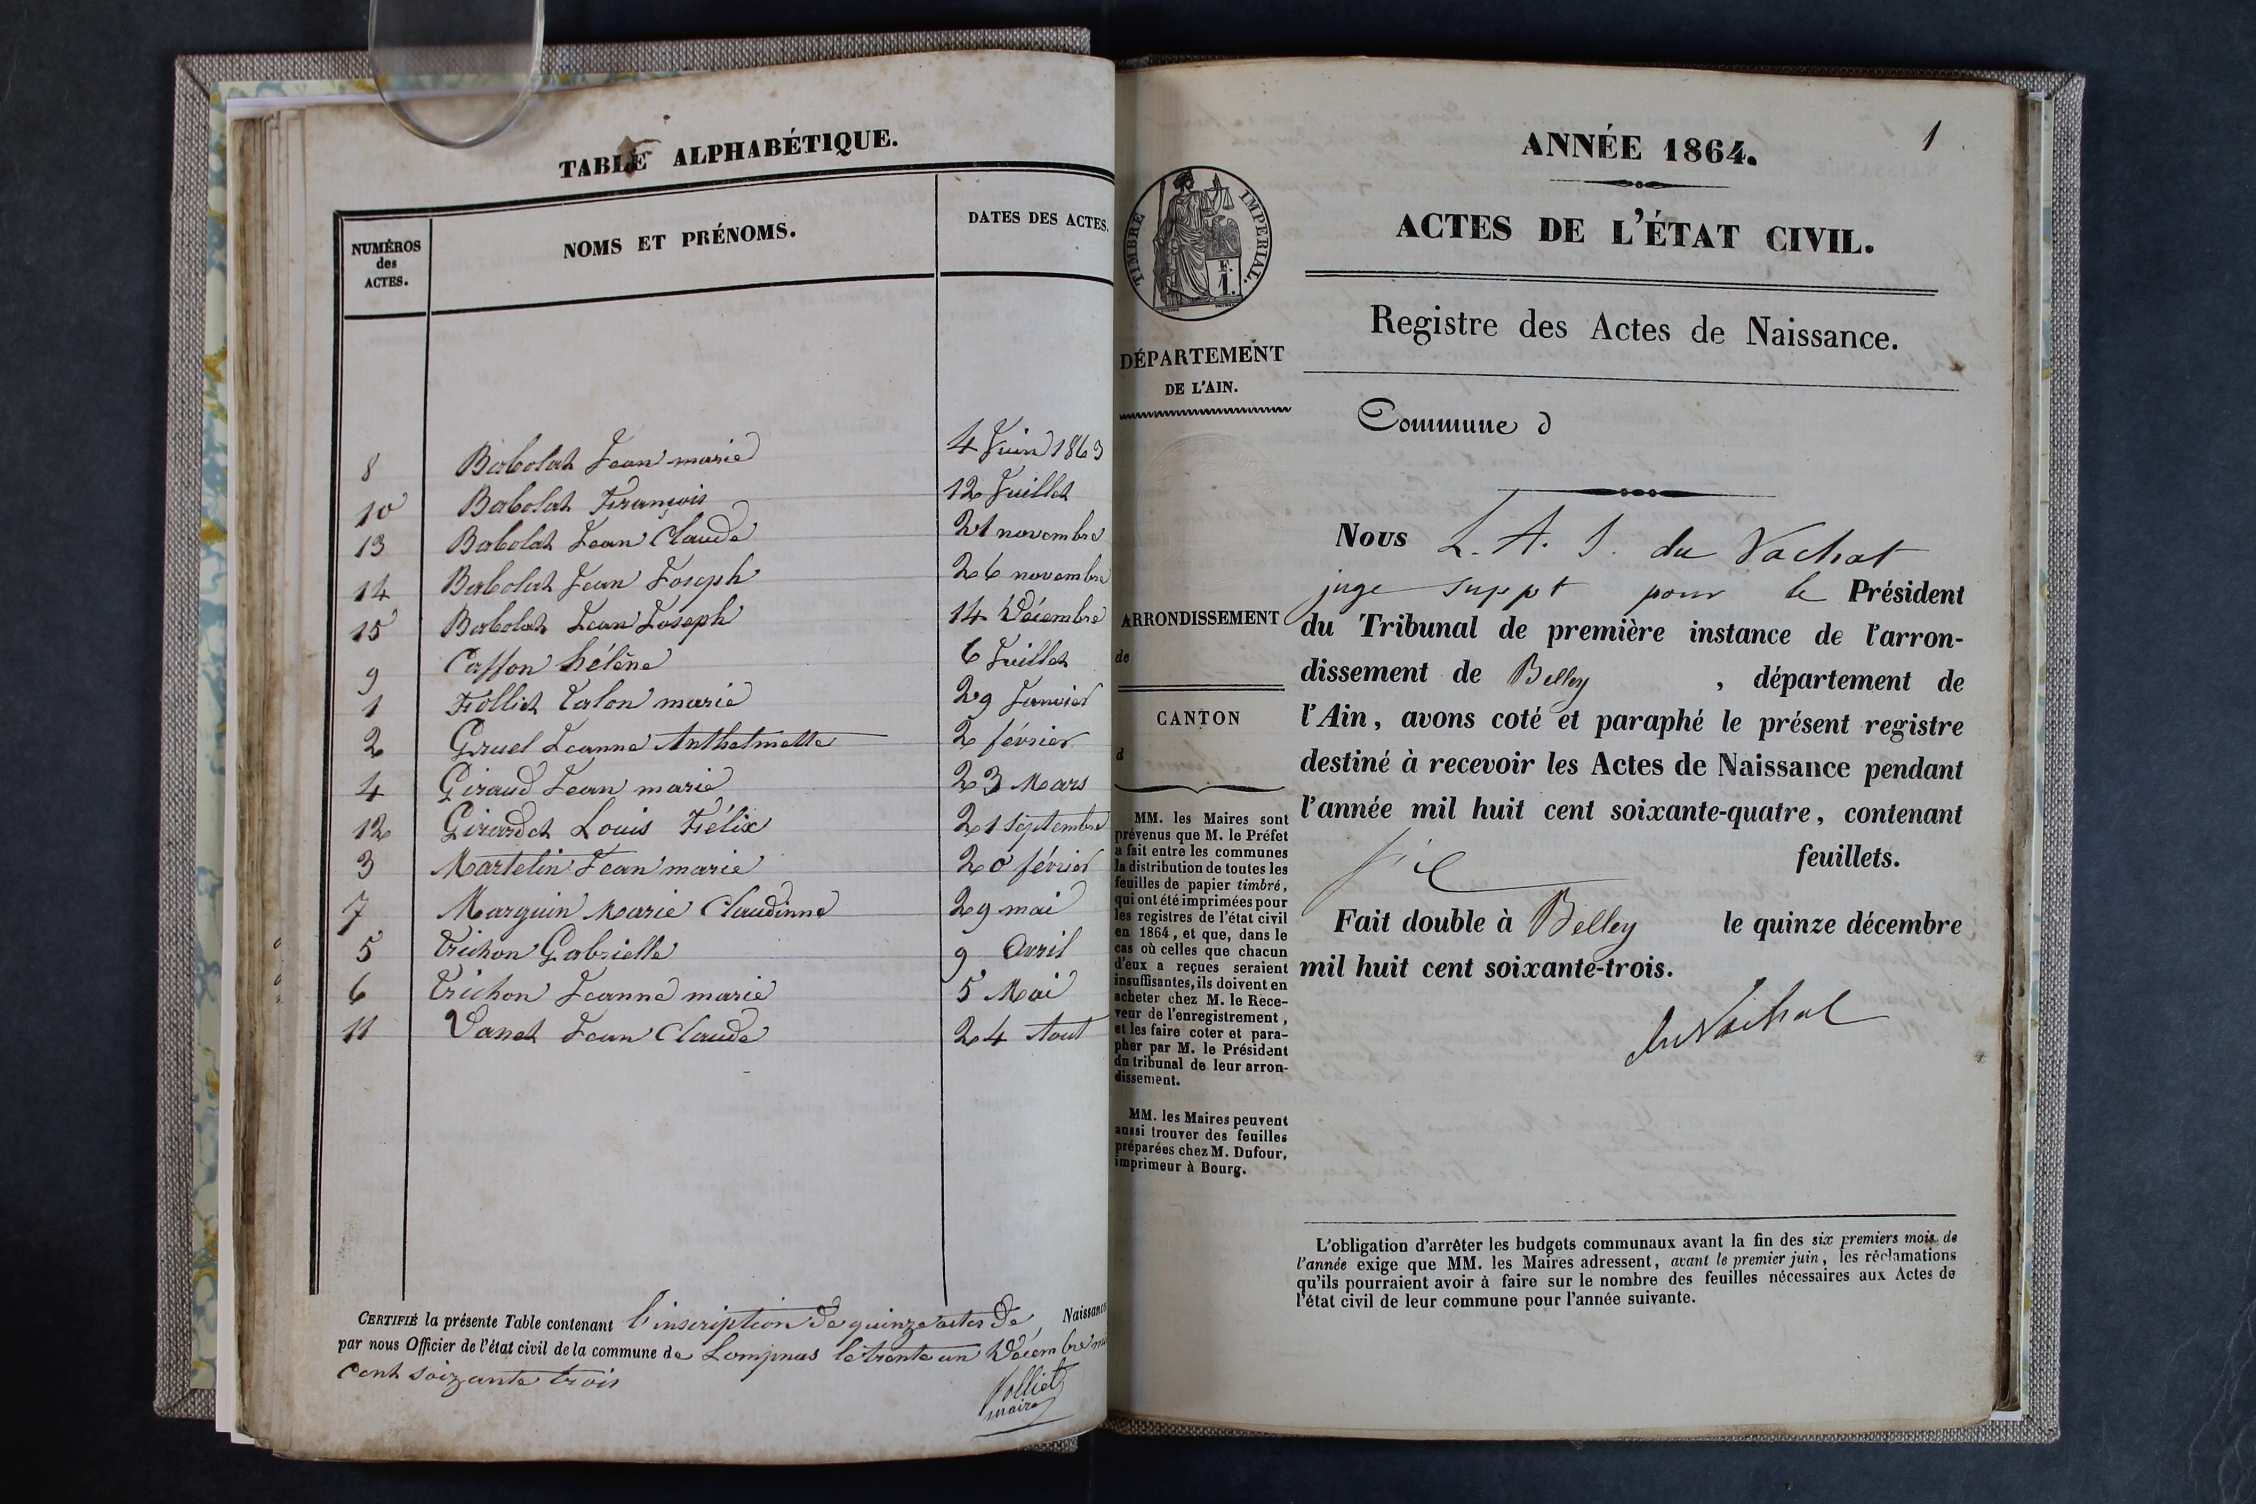 TABLE ALPHABÉTIQUE.
NUMÉROS
des
ACTES.
NOMS ET PRÉNOMS.
DATES DES ACTES.
8 Babolat Jean marie 4 Juin 1863
10 Babolat François 12 Juillet
13 Babolat Jean Claude 21 novembre
14 Babolat Jean Joseph 26 novembre
15 Babolat Jean Joseph 14 Décembre
9 Casson hélène 6 Juillet
1 Folliet Talon marie 29 Janvier
2 Gruel Jeanne Anthelmette 2 février
4 Giraud Jean marie 23 Mars
12 Girardet Louis Félix 21 Septembre
3 Martelin Jean marie 20 février
7 Marguin Marie Claudinne 29 mai
5 Trichon Gabrielle 9 Avril
6 Trichon Jeanne marie 5 Mai
11 Vanet Jean Claude 24 Aout
CERTIFIÉ la présente Table contenant l'inscription de quinze actes de Naissance
par nous Officier de l'état civil de la commune de Lompnas le trente un Décembre
cent soixante trois
Folliet
maire
1
ANNÉE 1864.
ACTES DE L'ÉTAT CIVIL.
Registre des Actes de Naissance.
TIMBRE IMPÉRIAL.
F.
1.
DÉPARTEMENT
DE L'AIN.
ARRONDISSEMENT
de
CANTON
d
MM. les Maires sont
prévenus que M. le Préfet
a fait entre les communes
la distribution de toutes les
feuilles de papier timbré,
qui ont été imprimées pour
les registres de l'état civil
en 1864, et que, dans le
cas où celles que chacun
d'eux a reçues seraient
insuffisantes, ils doivent en
acheter chez M. le Rece-
veur de l'enregistrement,
et les faire coter et para-
pher par M. le Président
du tribunal de leur arron-
dissement.
MM. les Maires peuvent
aussi trouver des feuilles
préparées chez M. Dufour,
imprimeur à Bourg.
Commune d
Nous L. A. J. du Vachat
juge suppt pour le Président
du Tribunal de première instance de l'arron-
dissement de Belley , département de
l'Ain, avons coté et paraphé le présent registre
destiné à recevoir les Actes de Naissance pendant
l'année mil huit cent soixante-quatre, contenant
feuillets.
Fait double à Belley le quinze décembre
mil huit cent soixante-trois.
du Vachat
L'obligation d'arrêter les budgets communaux avant la fin des six premiers mois de
l'année exige que MM. les Maires adressent, avant le premier juin, les réclamations
qu'ils pourraient avoir à faire sur le nombre des feuilles nécessaires aux Actes de
l'état civil de leur commune pour l'année suivante.